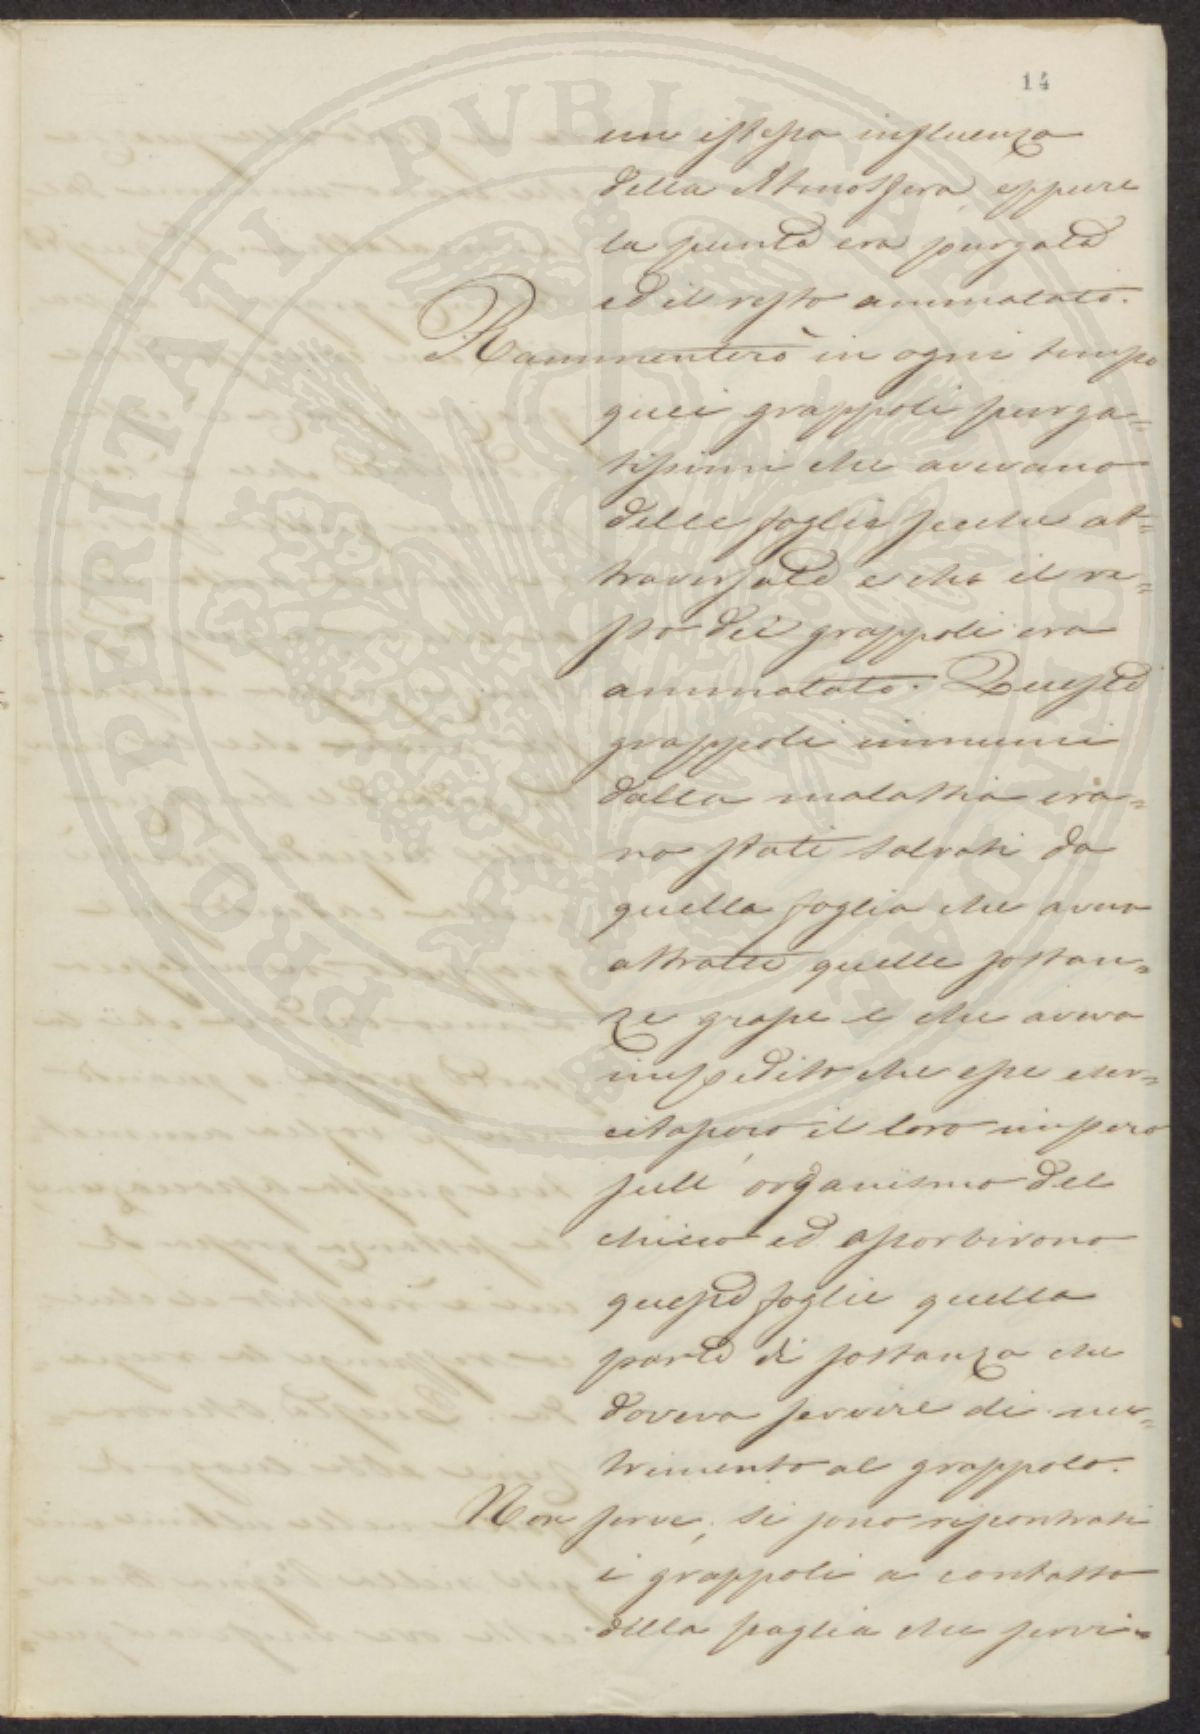 14
un istessa influenza
della Atmosfera, eppure
la punta era purgata
ed il resto ammalato.
Rammenterò in ogni tempo
quei grappoli purga=
tissimi che avevano
delle foglie secche at=
traversate e che il re=
sto dei grappoli era
ammalato. Questi
grappoli immuni
dalla malattia era=
no stati salvati da
quella foglia che aveva
attratte quelle sostan=
ze grasse e che aveva
impedito che esse eser=
citassero il loro impero
sull' organismo del
chicco ed assorbirono
queste foglie quella
parte di sostanza che
doveva servire di nu=
trimento al grappolo.
Non serve, si sono riscontrati
i grappoli a contatto
della paglia che servi=
PROSPERITATI PVBLICAE AVGENDAE